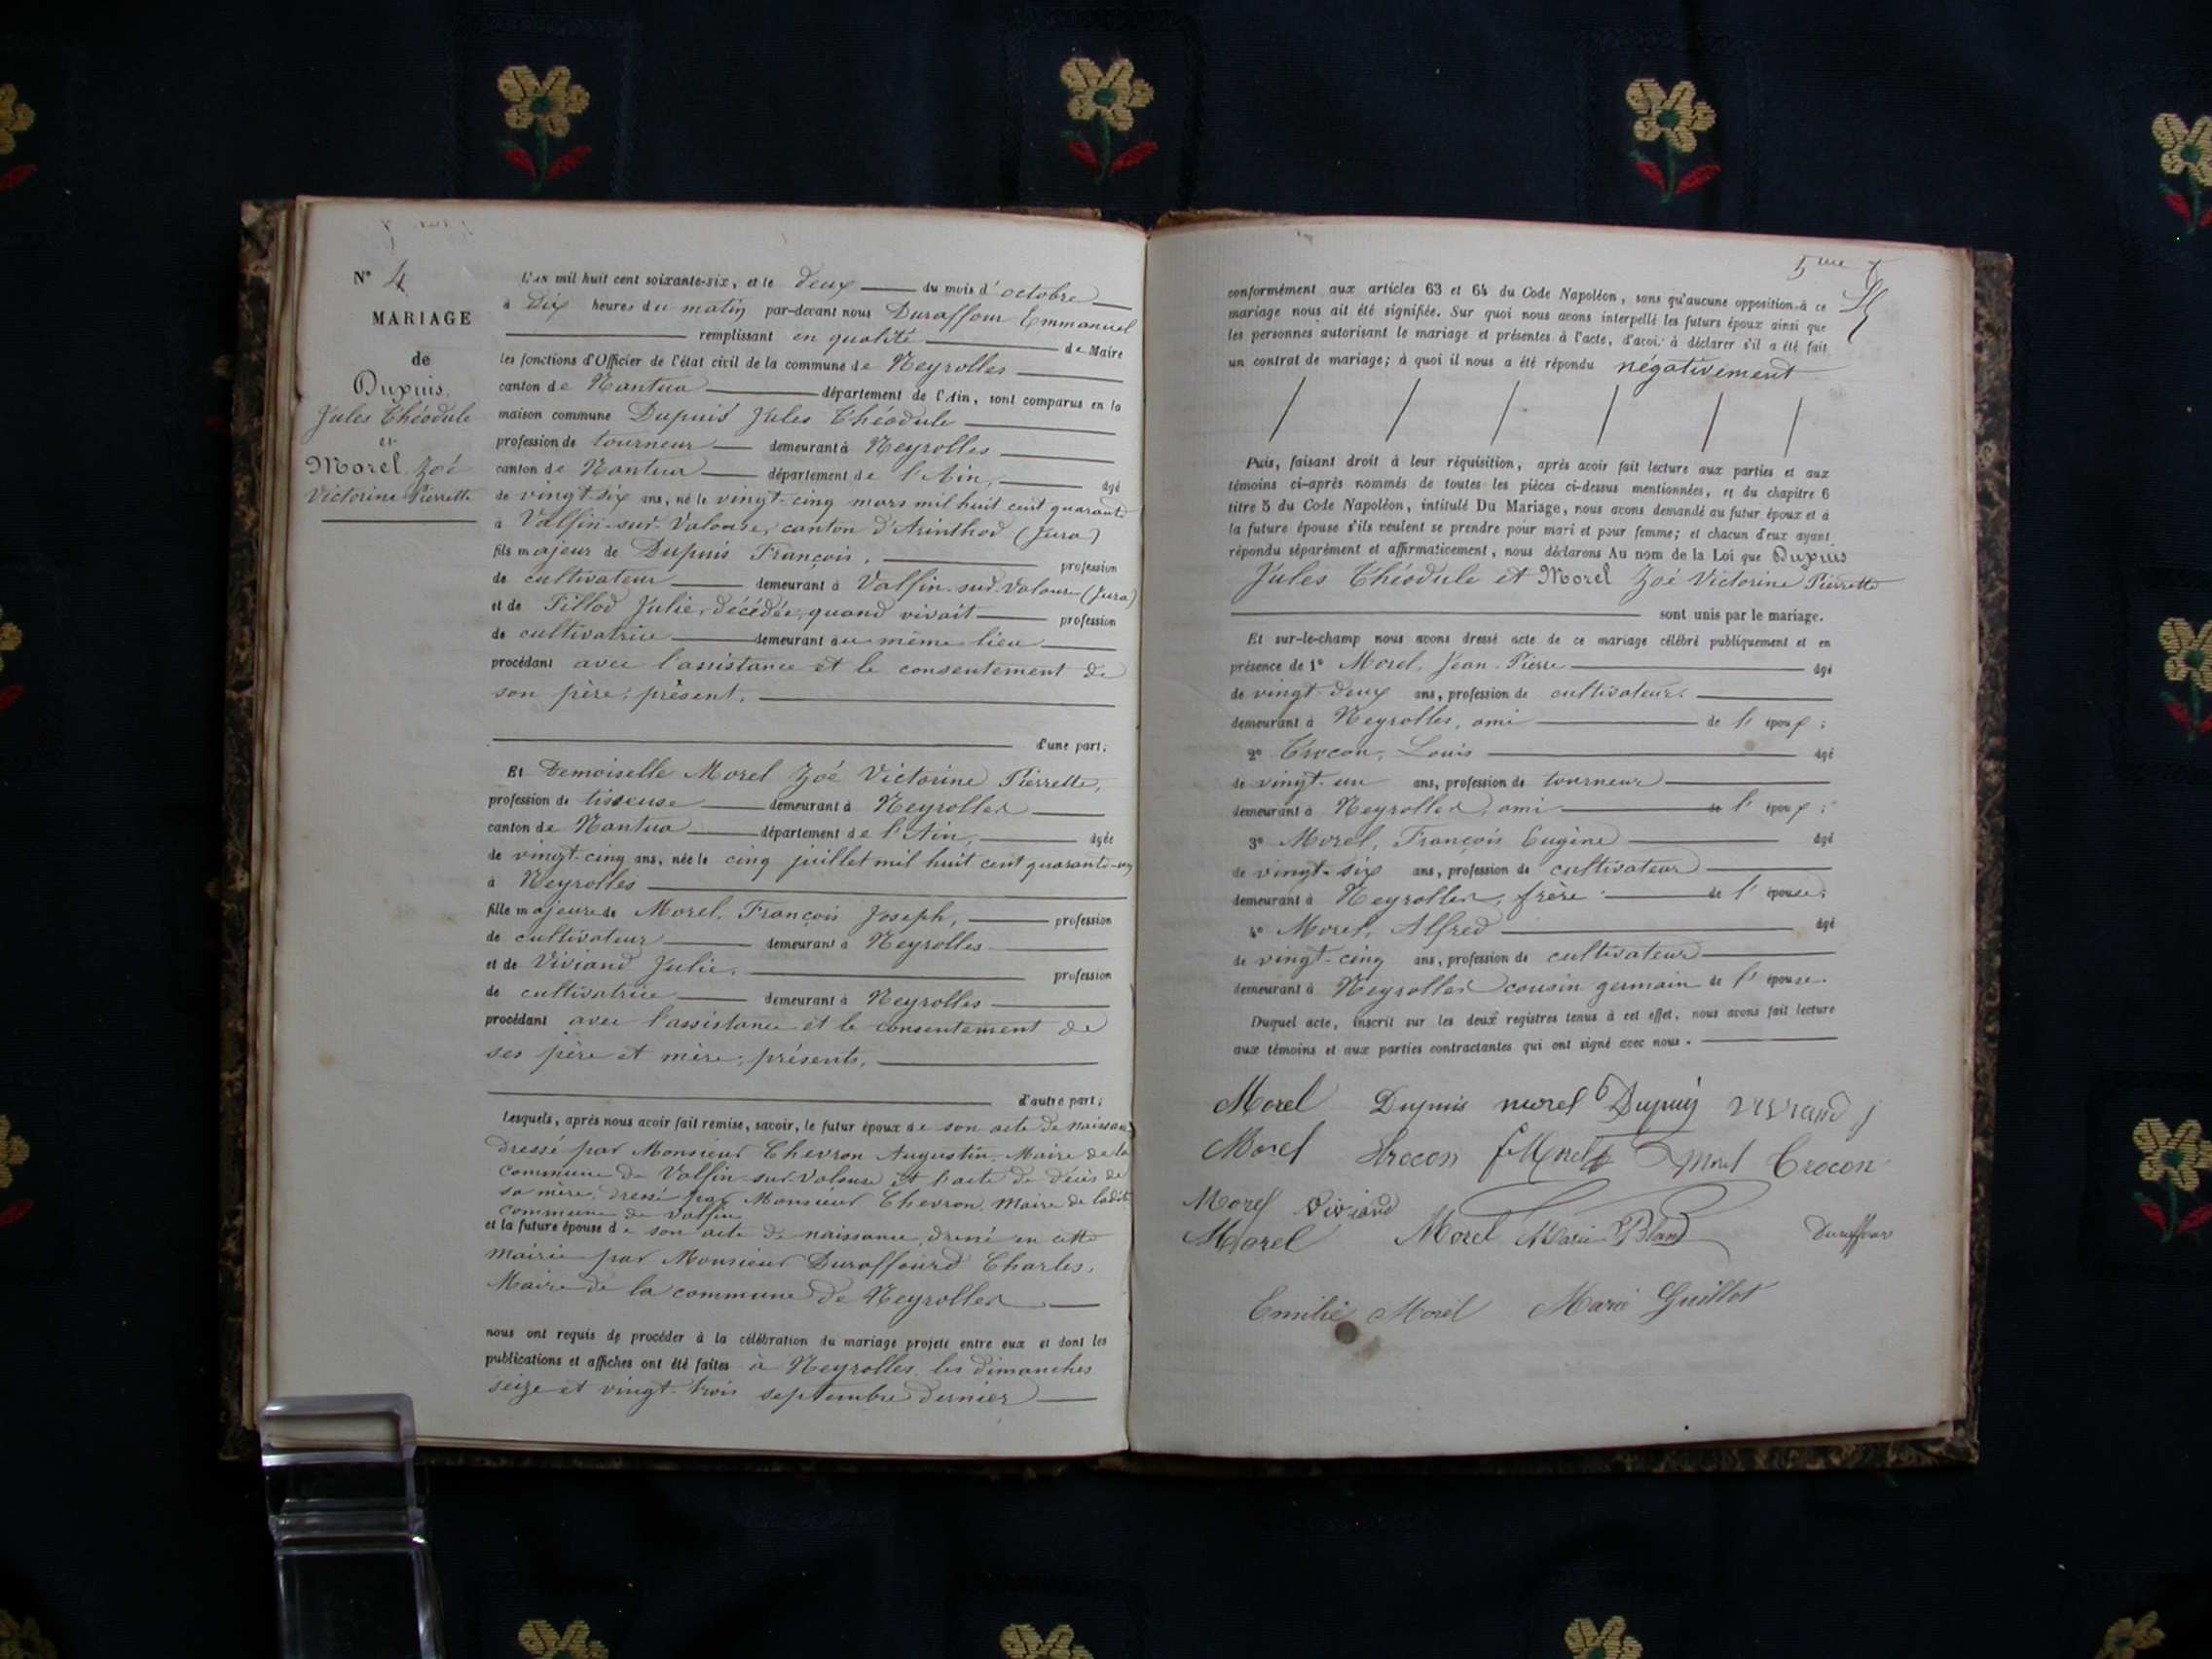 N° 4
MARIAGE
de
Dupuis,
Jules Théodule
et
Morel Zoé
Victorine Pierrette
L'AN mil huit cent soixante-six, et le deux du mois d'octobre
à dix heures du matin par-devant nous Duraffour Emmanuel
remplissant en qualité de Maire
les fonctions d'Officier de l'état civil de la commune de Neyrolles
canton de Nantua département de l'Ain, sont comparus en la
maison commune Dupuis Jules Théodule
profession de tourneur demeurant à Neyrolles
canton de Nantua département de l'Ain, âgé
de vingt-six ans, né le vingt-cinq mars mil huit cent quarante
à Valfin-sur-Valouse, canton d'Arinthod (Jura)
fils majeur de Dupuis François, profession
de cultivateur demeurant à Valfin-sur-Valouse (Jura)
et de Pillod Julie, décédée, quand vivait profession
de cultivatrice demeurant au même lieu
procédant avec l'assistance et le consentement de
son père, présent,
d'une part;
Et Demoiselle Morel Zoé Victorine Pierrette,
profession de tisseuse demeurant à Neyrolles
canton de Nantua département de l'Ain, âgée
de vingt-cinq ans, née le cinq juillet mil huit cent quarante-un
à Neyrolles
fille majeure de Morel, François Joseph, profession
de cultivateur demeurant à Neyrolles
et de Viviand Julie, profession
de cultivatrice demeurant à Neyrolles
procédant avec l'assistance et le consentement de
ses père et mère, présents,
d'autre part;
Lesquels, après nous avoir fait remise, savoir, le futur époux de son acte de naissance
dressé par Monsieur Chevron Augustin, Maire de la
commune de Valfin-sur-Valouse et l'acte de décès de
sa mère, dressé par Monsieur Chevron, Maire de ladite
commune de Valfin
et la future épouse de son acte de naissance, dressé en cette
mairie par Monsieur Duraffourd Charles,
Maire de la commune de Neyrolles
nous ont requis de procéder à la célébration du mariage projeté entre eux et dont les
publications et affiches ont été faites à Neyrolles, les dimanches
seize et vingt-trois septembre dernier
5me
conformément aux articles 63 et 64 du Code Napoléon, sans qu'aucune opposition à ce
mariage nous ait été signifiée. Sur quoi nous avons interpellé les futurs époux ainsi que
les personnes autorisant le mariage et présentes à l'acte, d'avoir à déclarer s'il a été fait
un contrat de mariage; à quoi il nous a été répondu négativement
Puis, faisant droit à leur réquisition, après avoir fait lecture aux parties et aux
témoins ci-après nommés de toutes les pièces ci-dessus mentionnées, et du chapitre 6
titre 5 du Code Napoléon, intitulé Du Mariage, nous avons demandé au futur époux et à
la future épouse s'ils veulent se prendre pour mari et pour femme; et chacun d'eux ayant
répondu séparément et affirmativement, nous déclarons Au nom de la Loi que Dupuis
Jules Théodule et Morel Zoé Victorine Pierrette
sont unis par le mariage.
Et sur-le-champ nous avons dressé acte de ce mariage célébré publiquement et en
présence de 1° Morel, Jean-Pierre âgé
de vingt-deux ans, profession de cultivateur,
demeurant à Neyrolles, ami de l'époux;
2° Crocon, Louis âgé
de vingt-un ans, profession de tourneur
demeurant à Neyrolles, ami de l'époux;
3° Morel, François Eugène âgé
de vingt-six ans, profession de cultivateur
demeurant à Neyrolles, frère de l'épouse;
4° Morel, Alfred âgé
de vingt-cinq ans, profession de cultivateur
demeurant à Neyrolles cousin germain de l'épouse.
Duquel acte, inscrit sur les deux registres tenus à cet effet, nous avons fait lecture
aux témoins et aux parties contractantes qui ont signé avec nous.
Morel Dupuis morel Dupuis viviand j
Morel Crocon Morel Morel Crocon
Morel Viviand
Morel Morel Marie Bland Duraffour
Emilie Morel Marie Guillot